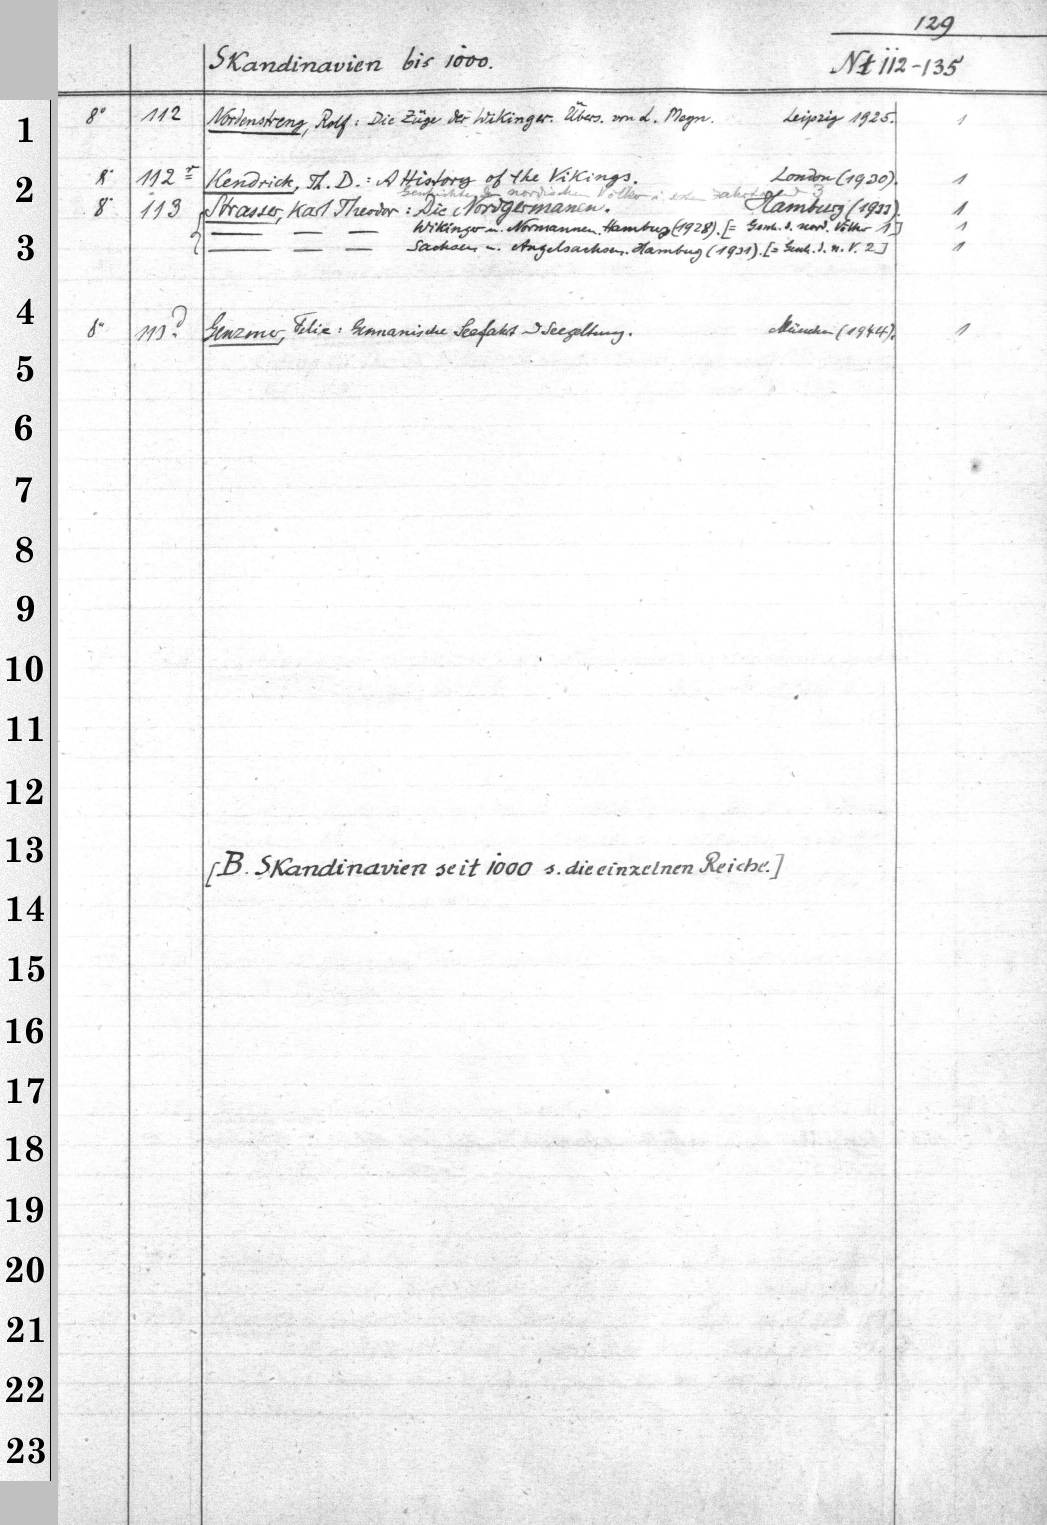 129
Skandinavien bis 1000.
Nt 112-135
1
8° 112 Nordenstreng, Rolf: Die Züge der Wikinger. Übers. von L. Meyn. Leipzig 1925. 1
2
8° 112 Kendrick, Th. D.: A History of the Vikings. London (1930). 1
Geschichte der nordischen Völker i. ersten Jahrtausend 3
8° 113 Strasser, Karl Theodor: Die Nordgermanen. Hamburg (1933). 1
— — — Wikinger u. Normannen. Hamburg (1928). [= Gesch. d. nord. Völker 1] 1
3
— — — Sachsen u. Angelsachsen. Hamburg (1931). [= Gesch. d. n. V. 2] 1
4
8° 113 Genzmer, Felix: Germanische Seefahrt u Seegeltung. München (1944). 1
5
6
7
8
9
10
11
12
13
[B. Skandinavien seit 1000 s. die einzelnen Reiche.]
14
15
16
17
18
19
20
21
22
23